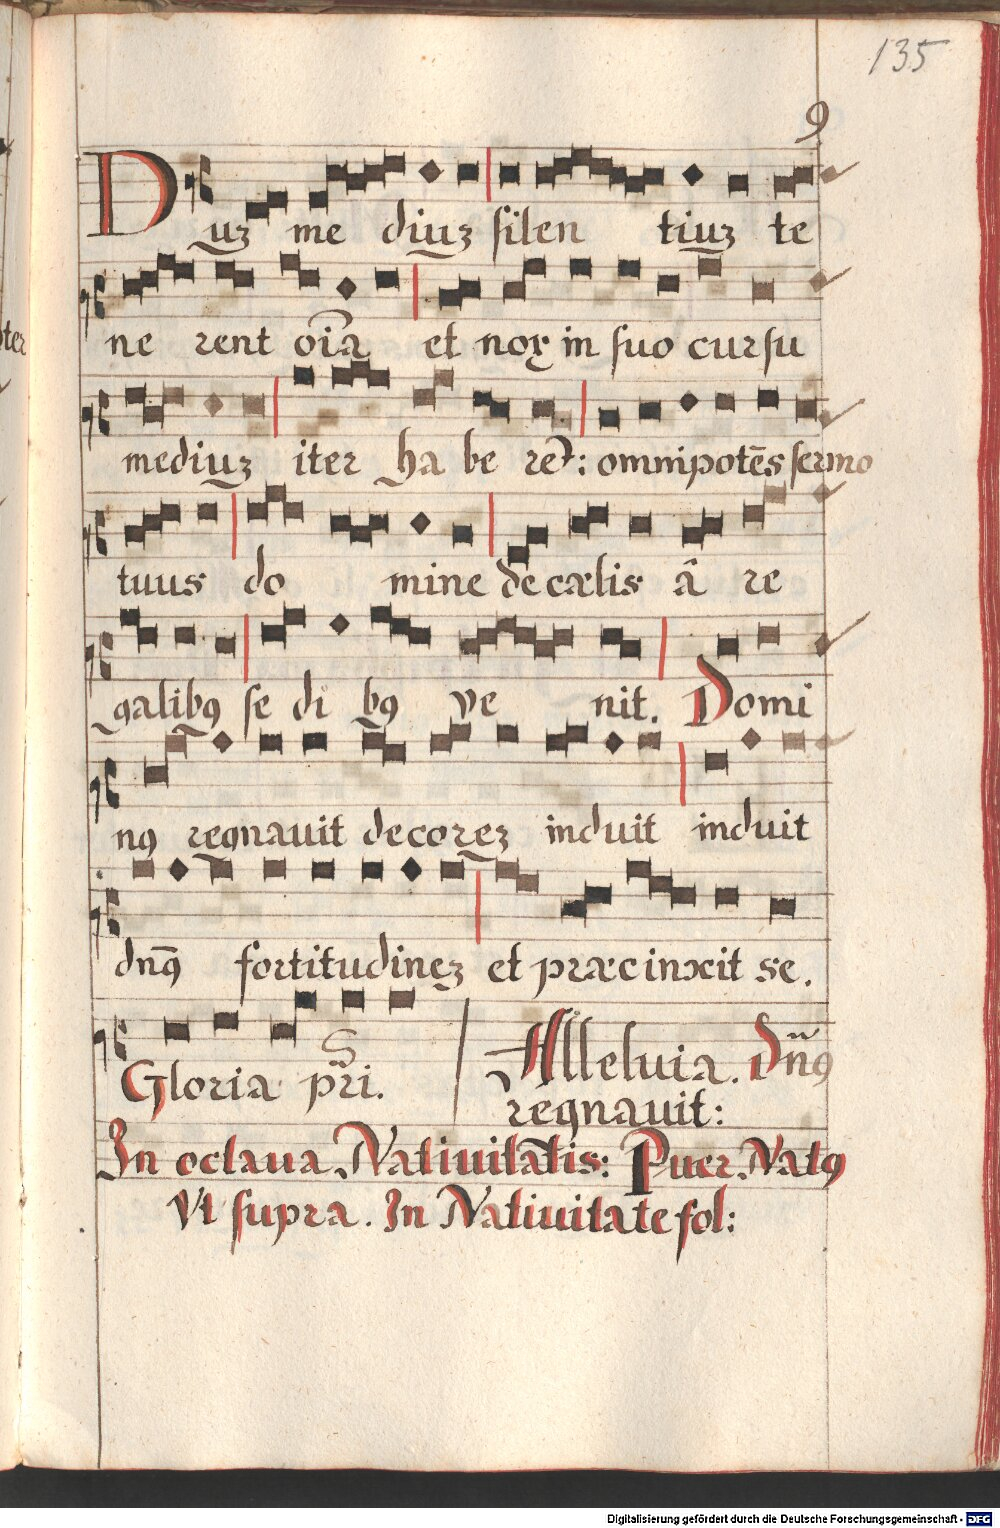 135
9
Duʒ me diuʒ silen tiuʒ te
ne rent oīa et nox in suo cursu
mediuʒ iter ha be ret: omnipotēs sermo
tuus do mine de cælis â re
galibꝯ se di bꝯ ve nit. Domi
nꝯ regnauit decoreʒ induit induit
dnꝯ̄ fortitudineʒ et præcinxit se.
Gloria pr̄i.
Alleluia. Dn̄ꝯ
regnauit:
In octaua Natiuitatis: Puer Natꝯ
Vt supra. In Natiuitate sol:
Digitalisierung gefördert durch die Deutsche Forschungsgemeinschaft - DFG